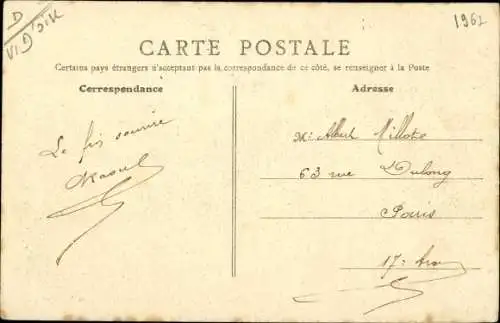 D
VI D'JIV
1962
CARTE POSTALE
Certains pays étrangers n'acceptant pas la correspondance de ce côté, se renseigner à la Poste
Correspondance
Adresse
Le fis sourire
Raoul
Mr Albert Millote
63 rue Dulong
Paris
17e Arr